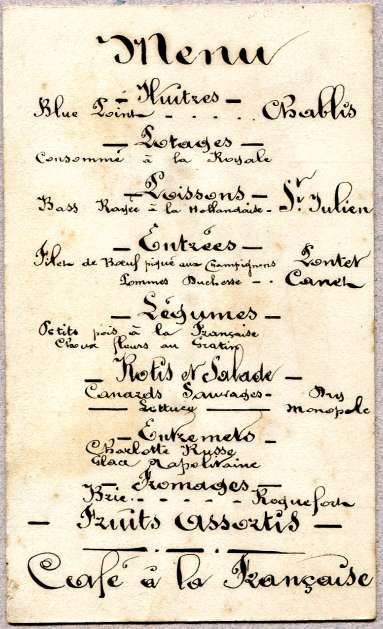 Menu
- Huitres -
Blue Point - - - - - Chablis
- Potages -
Consommé à la Royale
- Poissons -
Bass Rayée à la Hollandaise - St. Julien
- Entrées -
Filet de Bœuf piqué aux Champignons Pontet
Pommes Duchesse - - Canet
- Légumes -
Petits pois à la Française
Choux fleurs au Gratin
- Rotis et Salade -
Canards Sauvages - Dry
Lettucy Monopole
- Entremets -
Charlotte Russe
Glace Napolitaine
- Fromages -
Brie - - - - - Roquefort
- Fruits Assortis -
Café à la Française